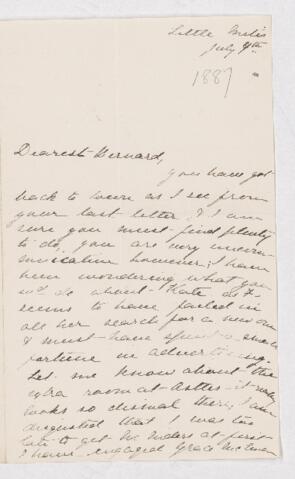 Little Metis
July 9th
1887
Dearest Bernard,
you have got
back to town as I see from
your last letter, & I am
sure you must find plenty
to do, you are very uncom-
municative however; I have
been wondering what you
wd. do about Kate
seems to have failed in
all her search for a new one
& must have spent a small
fortune in advertising.
Let me know about the
extra room at it really
looks so dismal there; I am
disgusted that I was too
late to get Mr. at first
I have engaged Grace